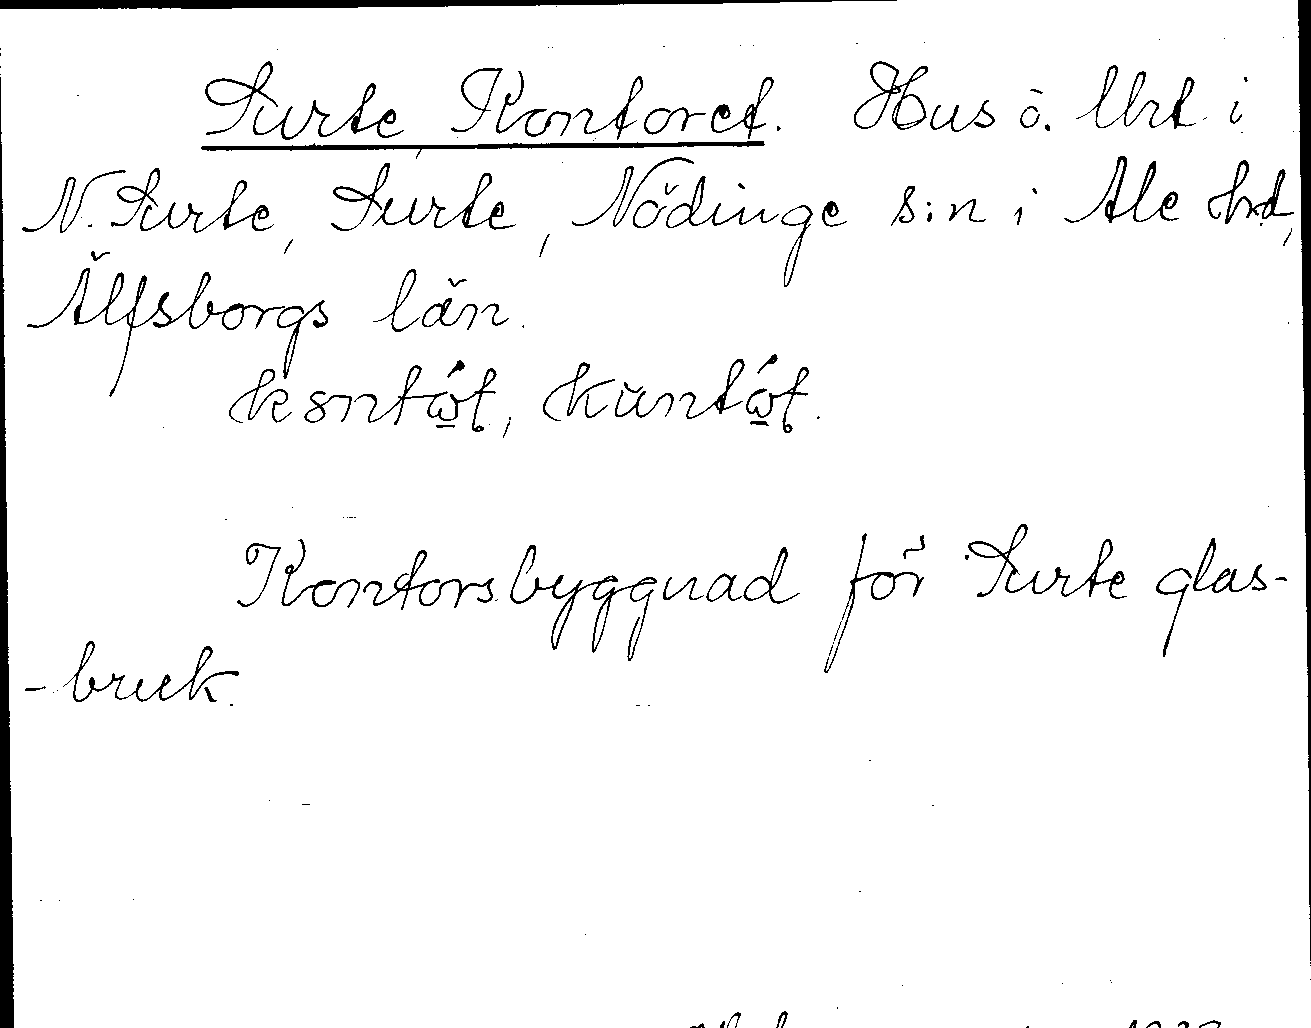 Surte Kontoret. Hus ö. Uht i
N. Surte, Surte, Nödinge s:n i Ale hd,
Älfsborgs län.
Kontorsbyggnad för Surte glas-
-bruk.